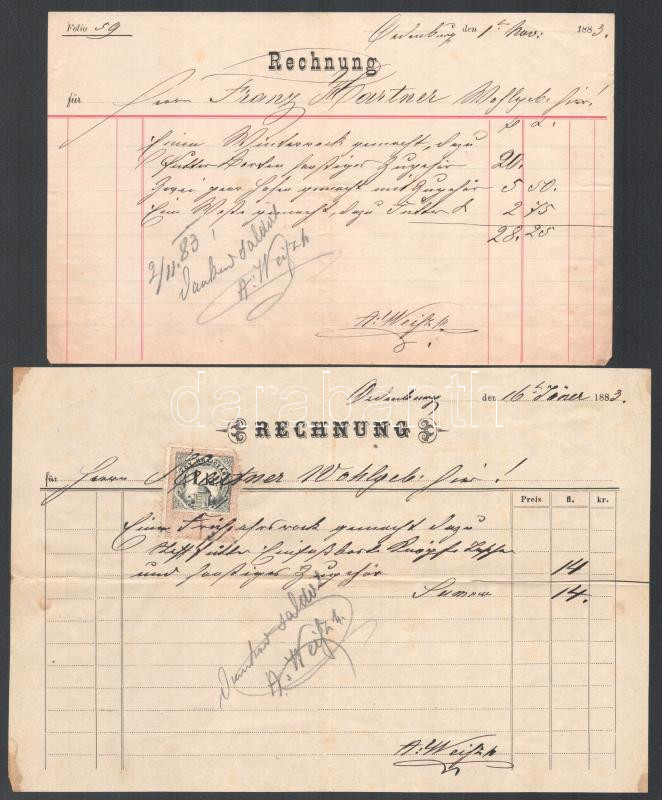 Folio 59
Oedenburg den 1t Nov: 1883.
Rechnung
für Herrn Franz Hartner Wohlgeb. hier!
f.
Einen Winterrock gemacht, dazu
Futter Borten sonstiges Zugehör 20.
Zwei paar Hosen gemacht mit Zugehör 5 50.
Eine Weste gemacht, dazu Futter 2 75
28. 25
2/11.83!
Dankend saldirt
A: Weiszh
A: Weiszh
darabanth
Oedenburg den 16t Jäner 1883.
RECHNUNG
für Herrn Hartner Wohlgeb. hier!
Preis fl. kr.
Einen Frühjahrsrock gemacht dazu
Stoff futter Knöpfe
und sonstiges Zugehör 14
Summa 14.
Dankend saldirt
A: Weiszh.
A: Weiszh